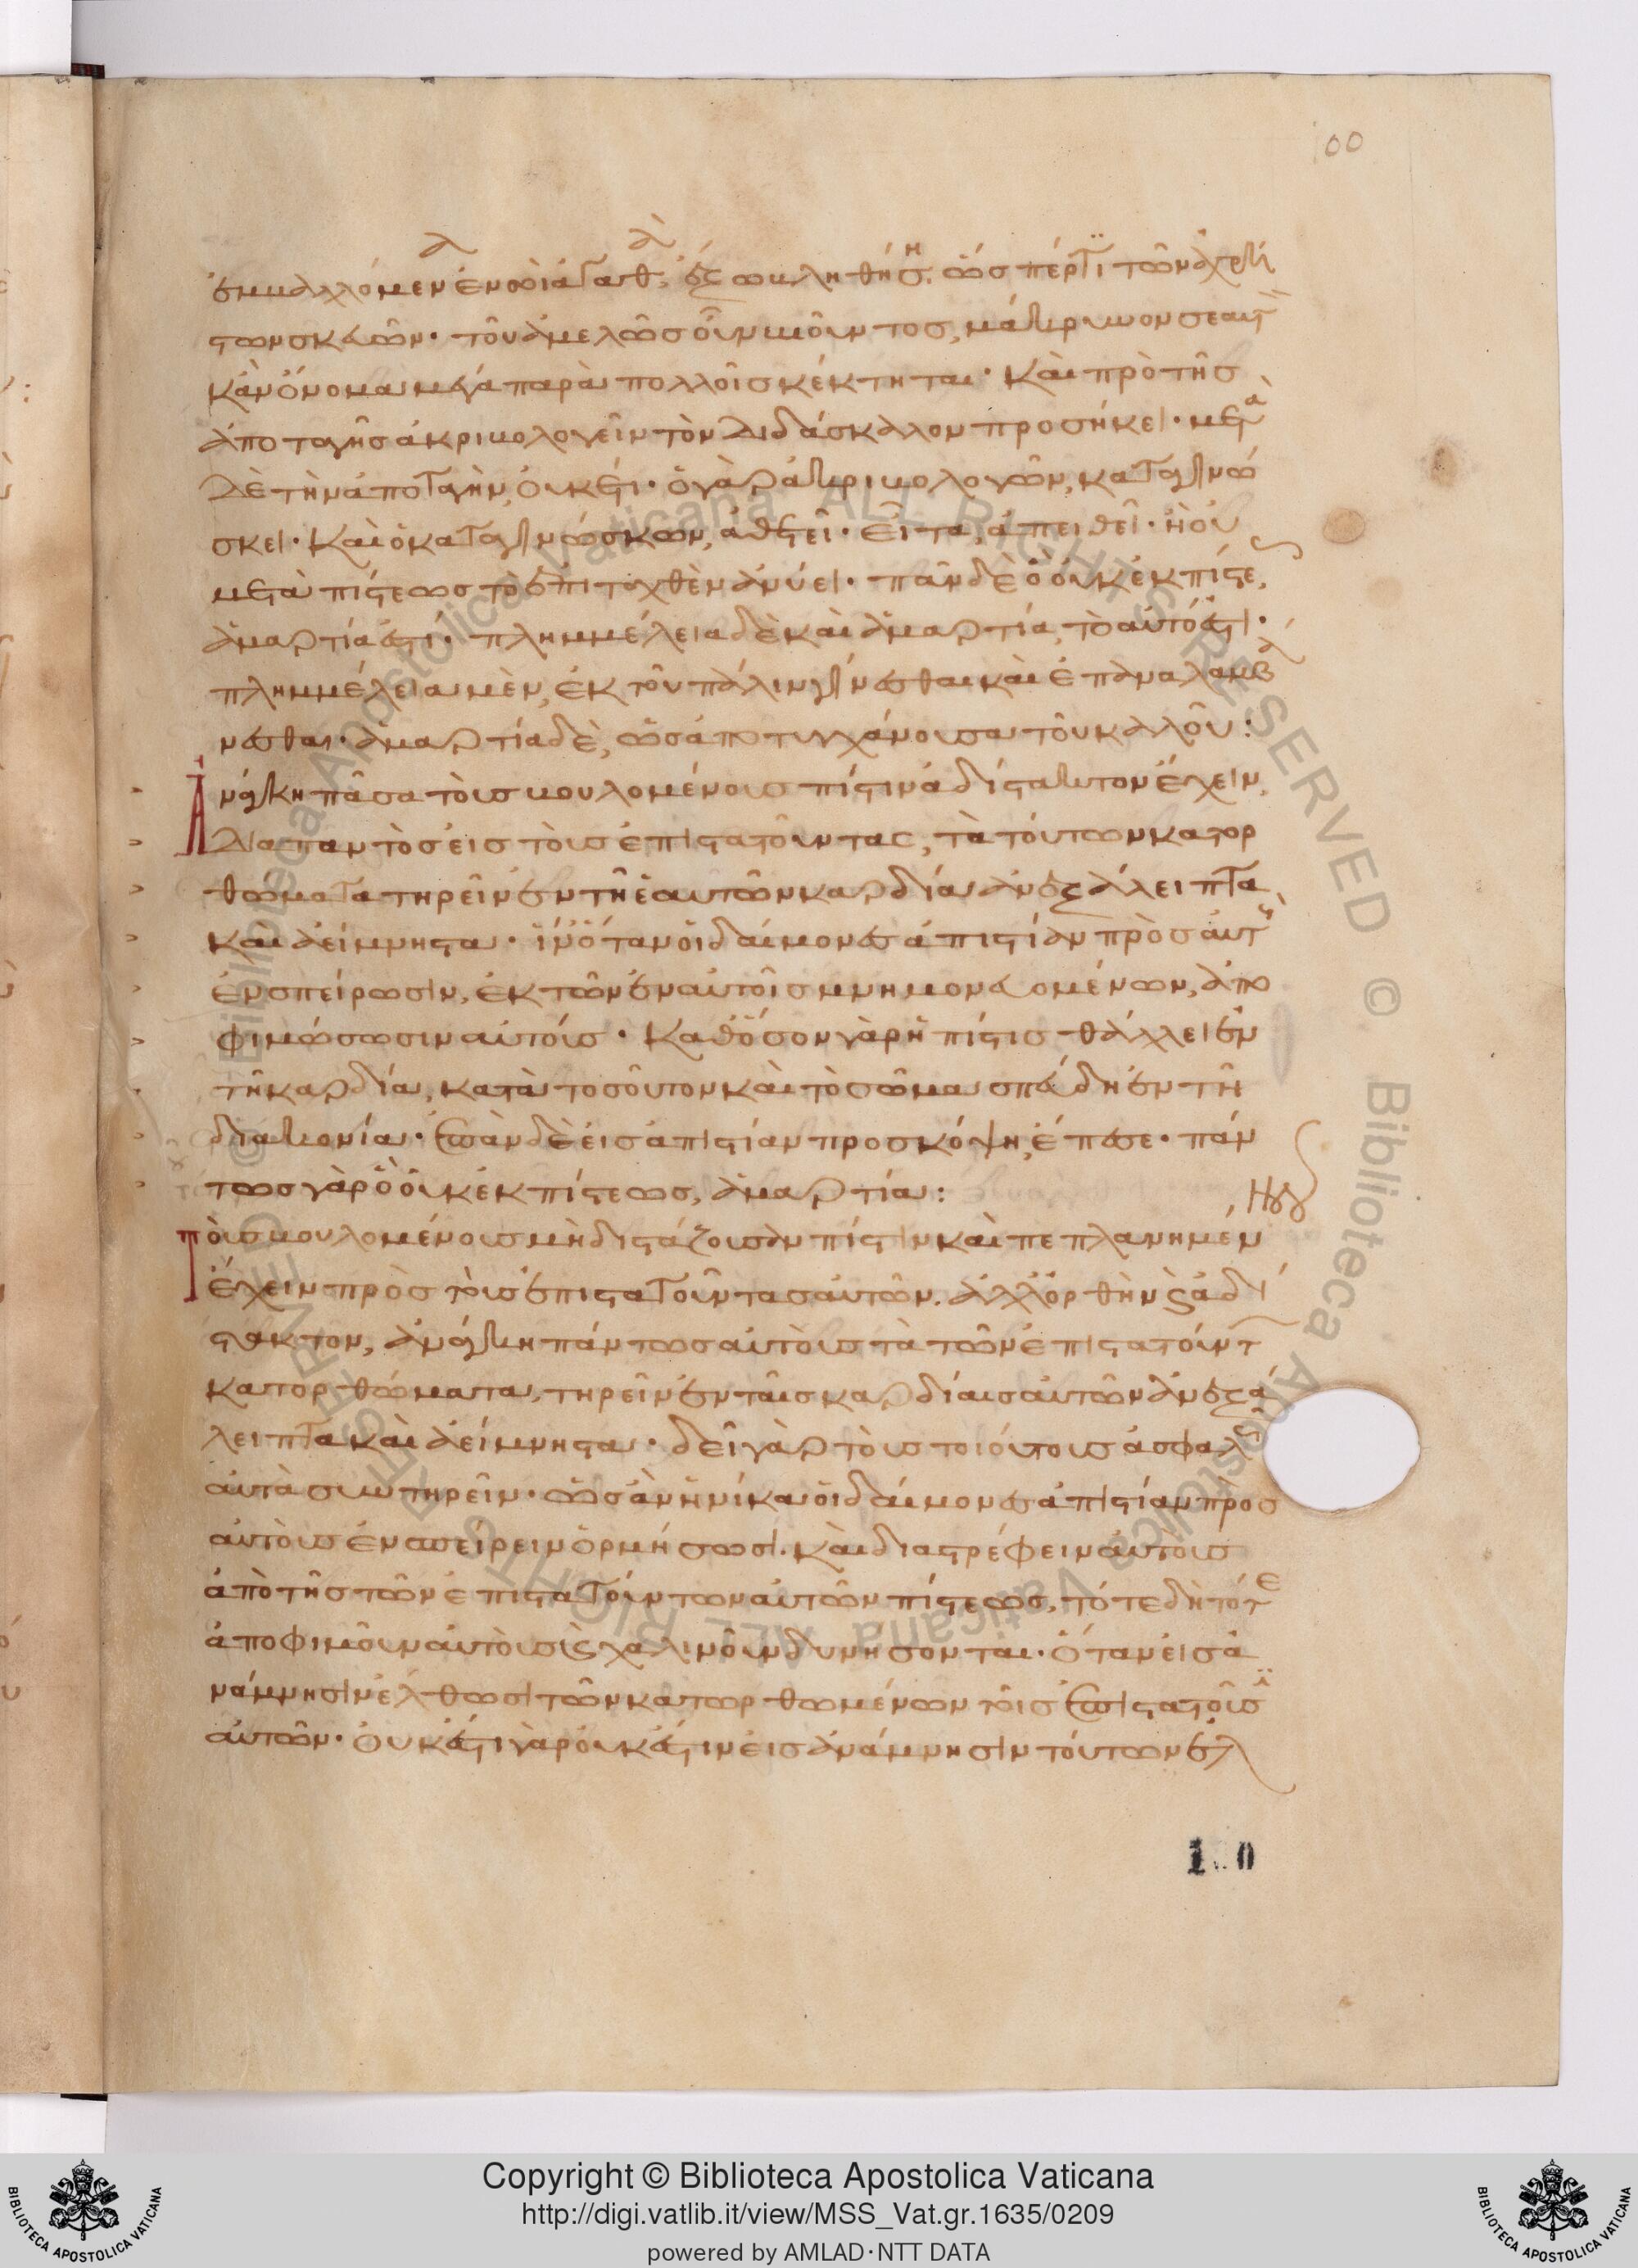 100
ἐμβαλλόμενεν ὧ ἀγαθὰ, ἐξωβληθήση. ὥσπέρ τι τῶν ἀχρή
στων σκευῶν· τοῦ ἀμελῶς συμβιοῦντος, μάκρυνον σεαυτὸν
κἂν ὄνομα μέγα παρὰ πολλοῖς κέκτηται· Καὶ πρὸ τῆς
ἀποταγῆς ἀκριβολογεῖν τὸν διδάσκαλον προσήκει· μετὰ
δὲ τὴν ἀποταγὴν, οὐκέτι· ὁ γὰρ ἀκριβολογῶν, καταγινώ
σκει· Καὶ ὁ καταγινώσκων, ἀθετεῖ· εἶτα, ἀπειθεῖ· ἢ οὐ
μετὰ πίστεως τὸ ἐπιταχθὲν ἀνύει· πᾶν δὲ ὃ οὐκ ἐκ πίστεως,
ἁμαρτία ἐστί· πλημμέλεια δὲ καὶ ἁμαρτία, τὸ αὐτό ἐστι·
πλημμέλεια μὲν, ἐκ τοῦ πάλιν γίνεσθαι καὶ ἐπαναλαμβά
νεσθαι· ἁμαρτία δὲ, ὡς ἀποτυγχάνουσα τοῦ καλοῦ:
Ἀνάγκη πᾶσα τοὺς βουλομένους πίστιν ἀδίστακτον ἔχειν,
διαπαντὸς εἰς τοὺς ἐπιστατοῦντας, τὰ τούτων κατορ
θώματα τηρεῖν ἐν τῇ ἑαυτῶν καρδία ἀνεξάλειπτα
καὶ ἀείμνηστα· ἵν' ὅταν οἱ δαίμονες ἀπιστίαν πρὸς αὐτοὺς
ἐνσπείρωσιν, ἐκ τῶν ἐν αὐτοῖς μνημονευομένων, ἀπο
φιμώσωσιν αὐτούς· Καθ' ὅσον γὰρ ἡ πίστις θάλλει ἐν
τῇ καρδία, κατὰ τοσοῦτον καὶ τὸ σῶμα σπεύδη ἐν τῇ
διακονία· ἐπὰν δὲ εἰς ἀπιστίαν προσκόψη, ἔπεσε· πάν
τως γὰρ ὃ οὐκ ἐκ πίστεως, ἁμαρτία:
Τοὺς βουλομένους μὴ διστάζουσαν πίστιν καὶ πεπλανημένην
ἔχειν πρὸς τοὺς ἐπιστατοῦντας αὐτῶν. ἀλλ' ὀρθὴν καὶ ἀδί
στακτον, ἀνάγκη πάντως αὐτοὺς τὰ τῶν ἐπιστατούντων
κατορθώματα, τηρεῖν ἐν ταῖς καρδίαις αὐτῶν ἀνεξά
λειπτα καὶ ἀείμνηστα· δεῖ γὰρ τοὺς τοιούτους ἀσφαλῶς
αὐτὰ συντηρεῖν· ὡς ἂν ἡνίκα οἱ δαίμονες ἀπιστίαν πρὸς
αὐτοὺς ἐνσπείρειν ὁρμήσωσι. καὶ διαστρέφειν αὐτοὺς
ἀπὸ τῆς τῶν ἐπιστατούντων αὐτῶν πίστεως, τότε δὴ τότε
ἀποφιμοῦν αὐτοὺς καὶ χαλινοῦν δυνήσονται· ὅταν εἰς ἀ
νάμνησιν ἔλθωσι τῶν κατωρθωμένων τοῖς ἐπιστατοῦσιν
αὐτῶν· οὐκ ἔστι γὰρ οὐκ ἔστιν εἰς ἀνάμνησιν τούτων ἐλ
100
Copyright © Biblioteca Apostolica Vaticana
http://digi.vatlib.it/view/MSS_Vat.gr.1635/0209
powered by AMLAD·NTT DATA
BIBLIOTECA APOSTOLICA VATICANA
BIBLIOTECA APOSTOLICA VATICANA